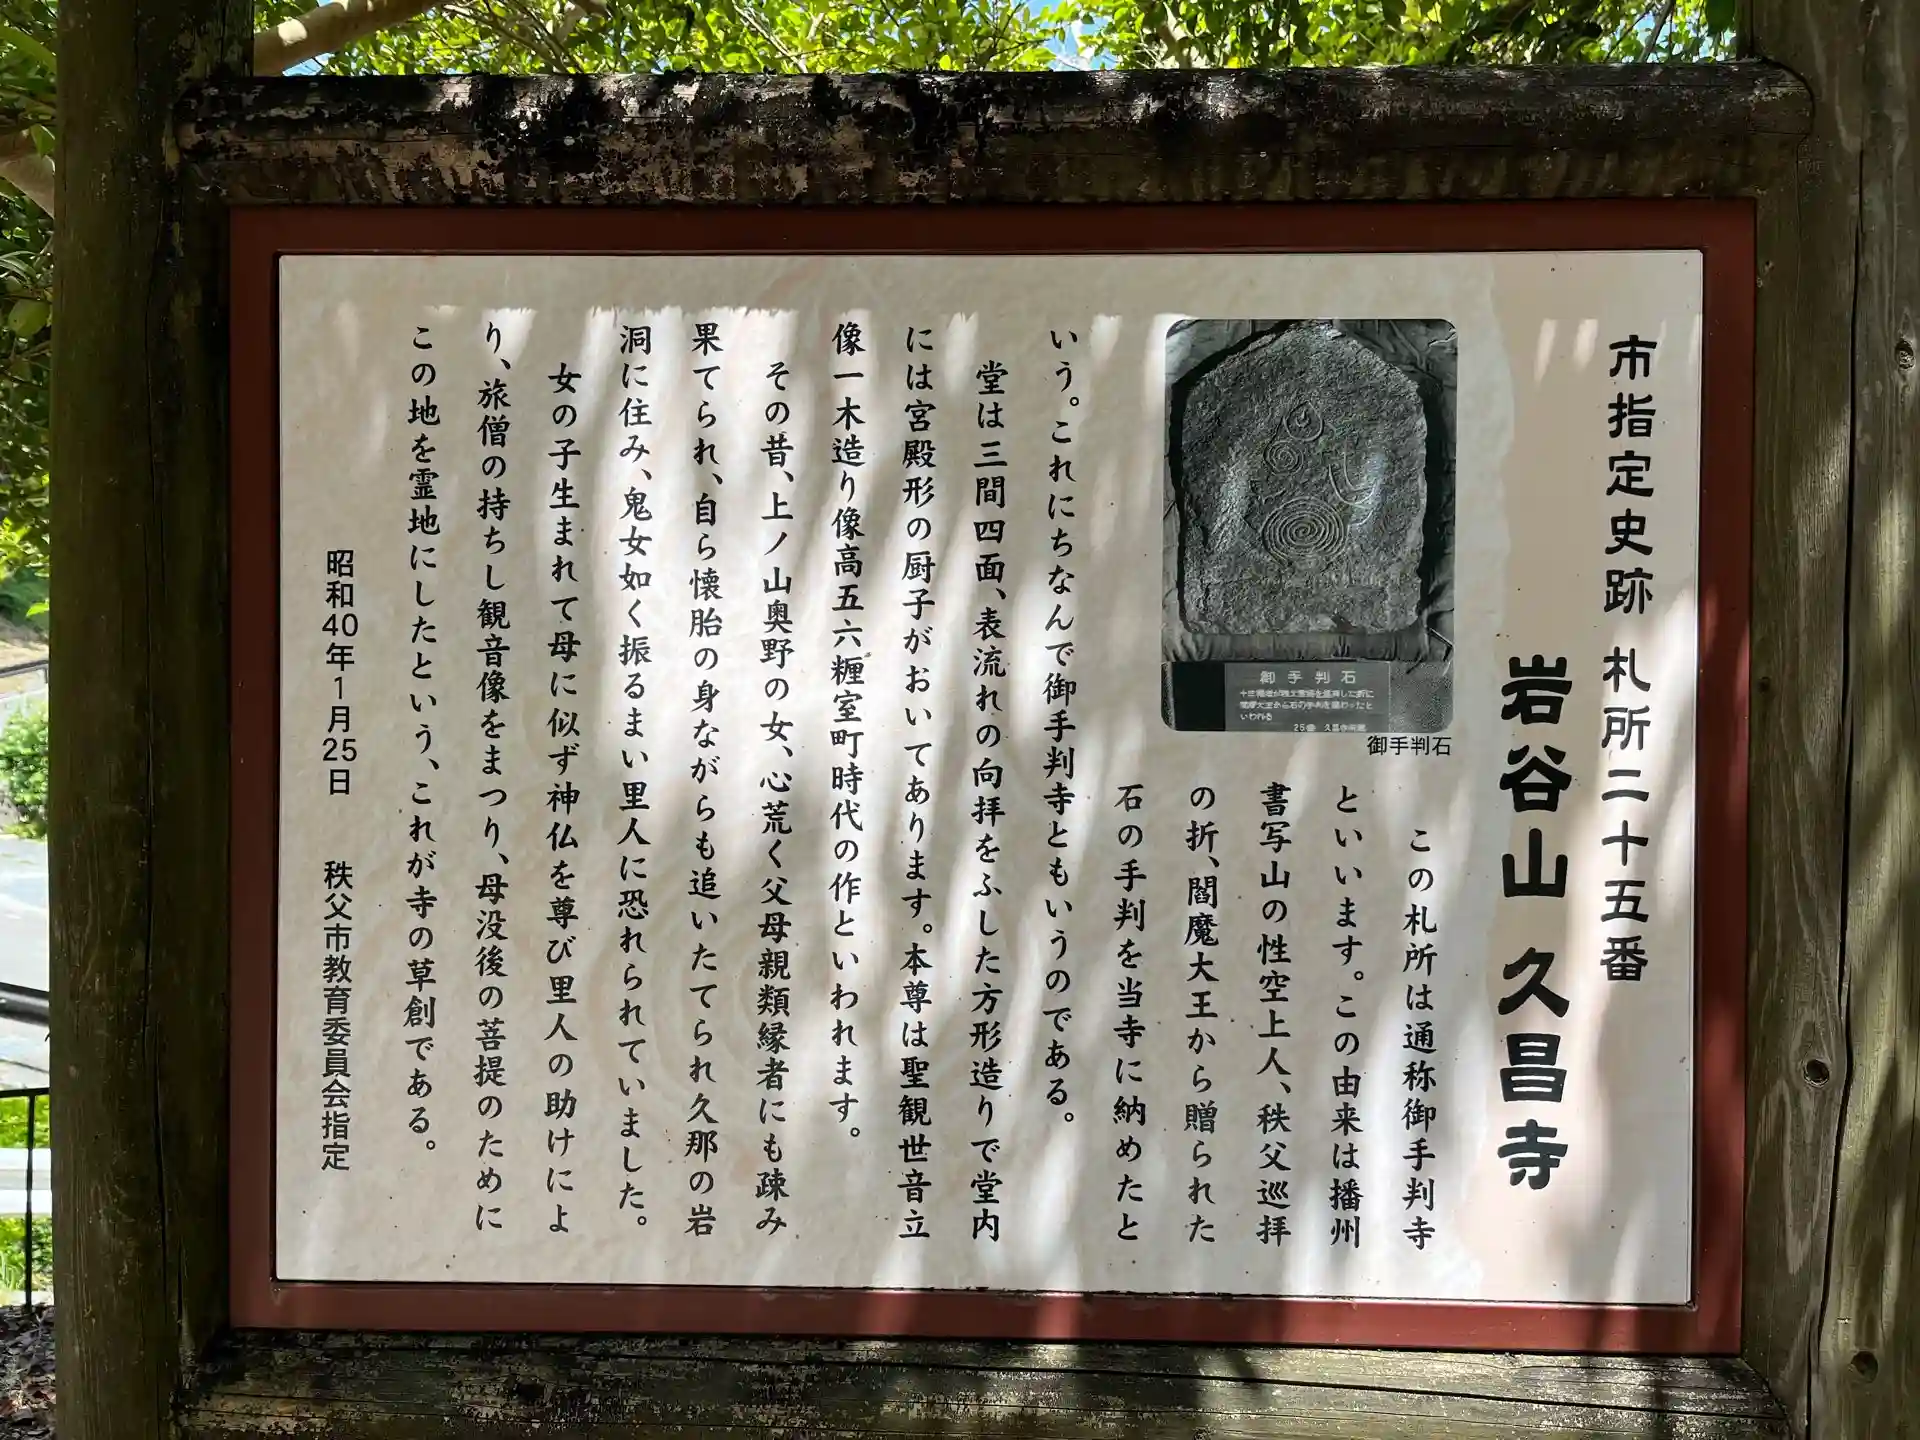 市指定史跡 札所二十五番
岩谷山 久昌寺
この札所は通称御手判寺
といいます。この由来は播州
書写山の性空上人、秩父巡拝
の折、閻魔大王から贈られた
石の手判を当寺に納めたと
いう。これにちなんで御手判寺ともいうのである。
堂は三間四面、表流れの向拝をふした方形造りで堂内
には宮殿形の厨子がおいてあります。本尊は聖観世音立
像一木造り像高五六糎室町時代の作といわれます。
その昔、上ノ山奥野の女、心荒く父母親類縁者にも疎み
果てられ、自ら懐胎の身ながらも追いたてられ久那の岩
洞に住み、鬼女如く振るまい里人に恐れられていました。
女の子生まれて母に似ず神仏を尊び里人の助けによ
り、旅僧の持ちし観音像をまつり、母没後の菩提のために
この地を霊地にしたという、これが寺の草創である。
昭和40年1月25日 秩父市教育委員会指定
御手判石
いわれる
25番
御手判石